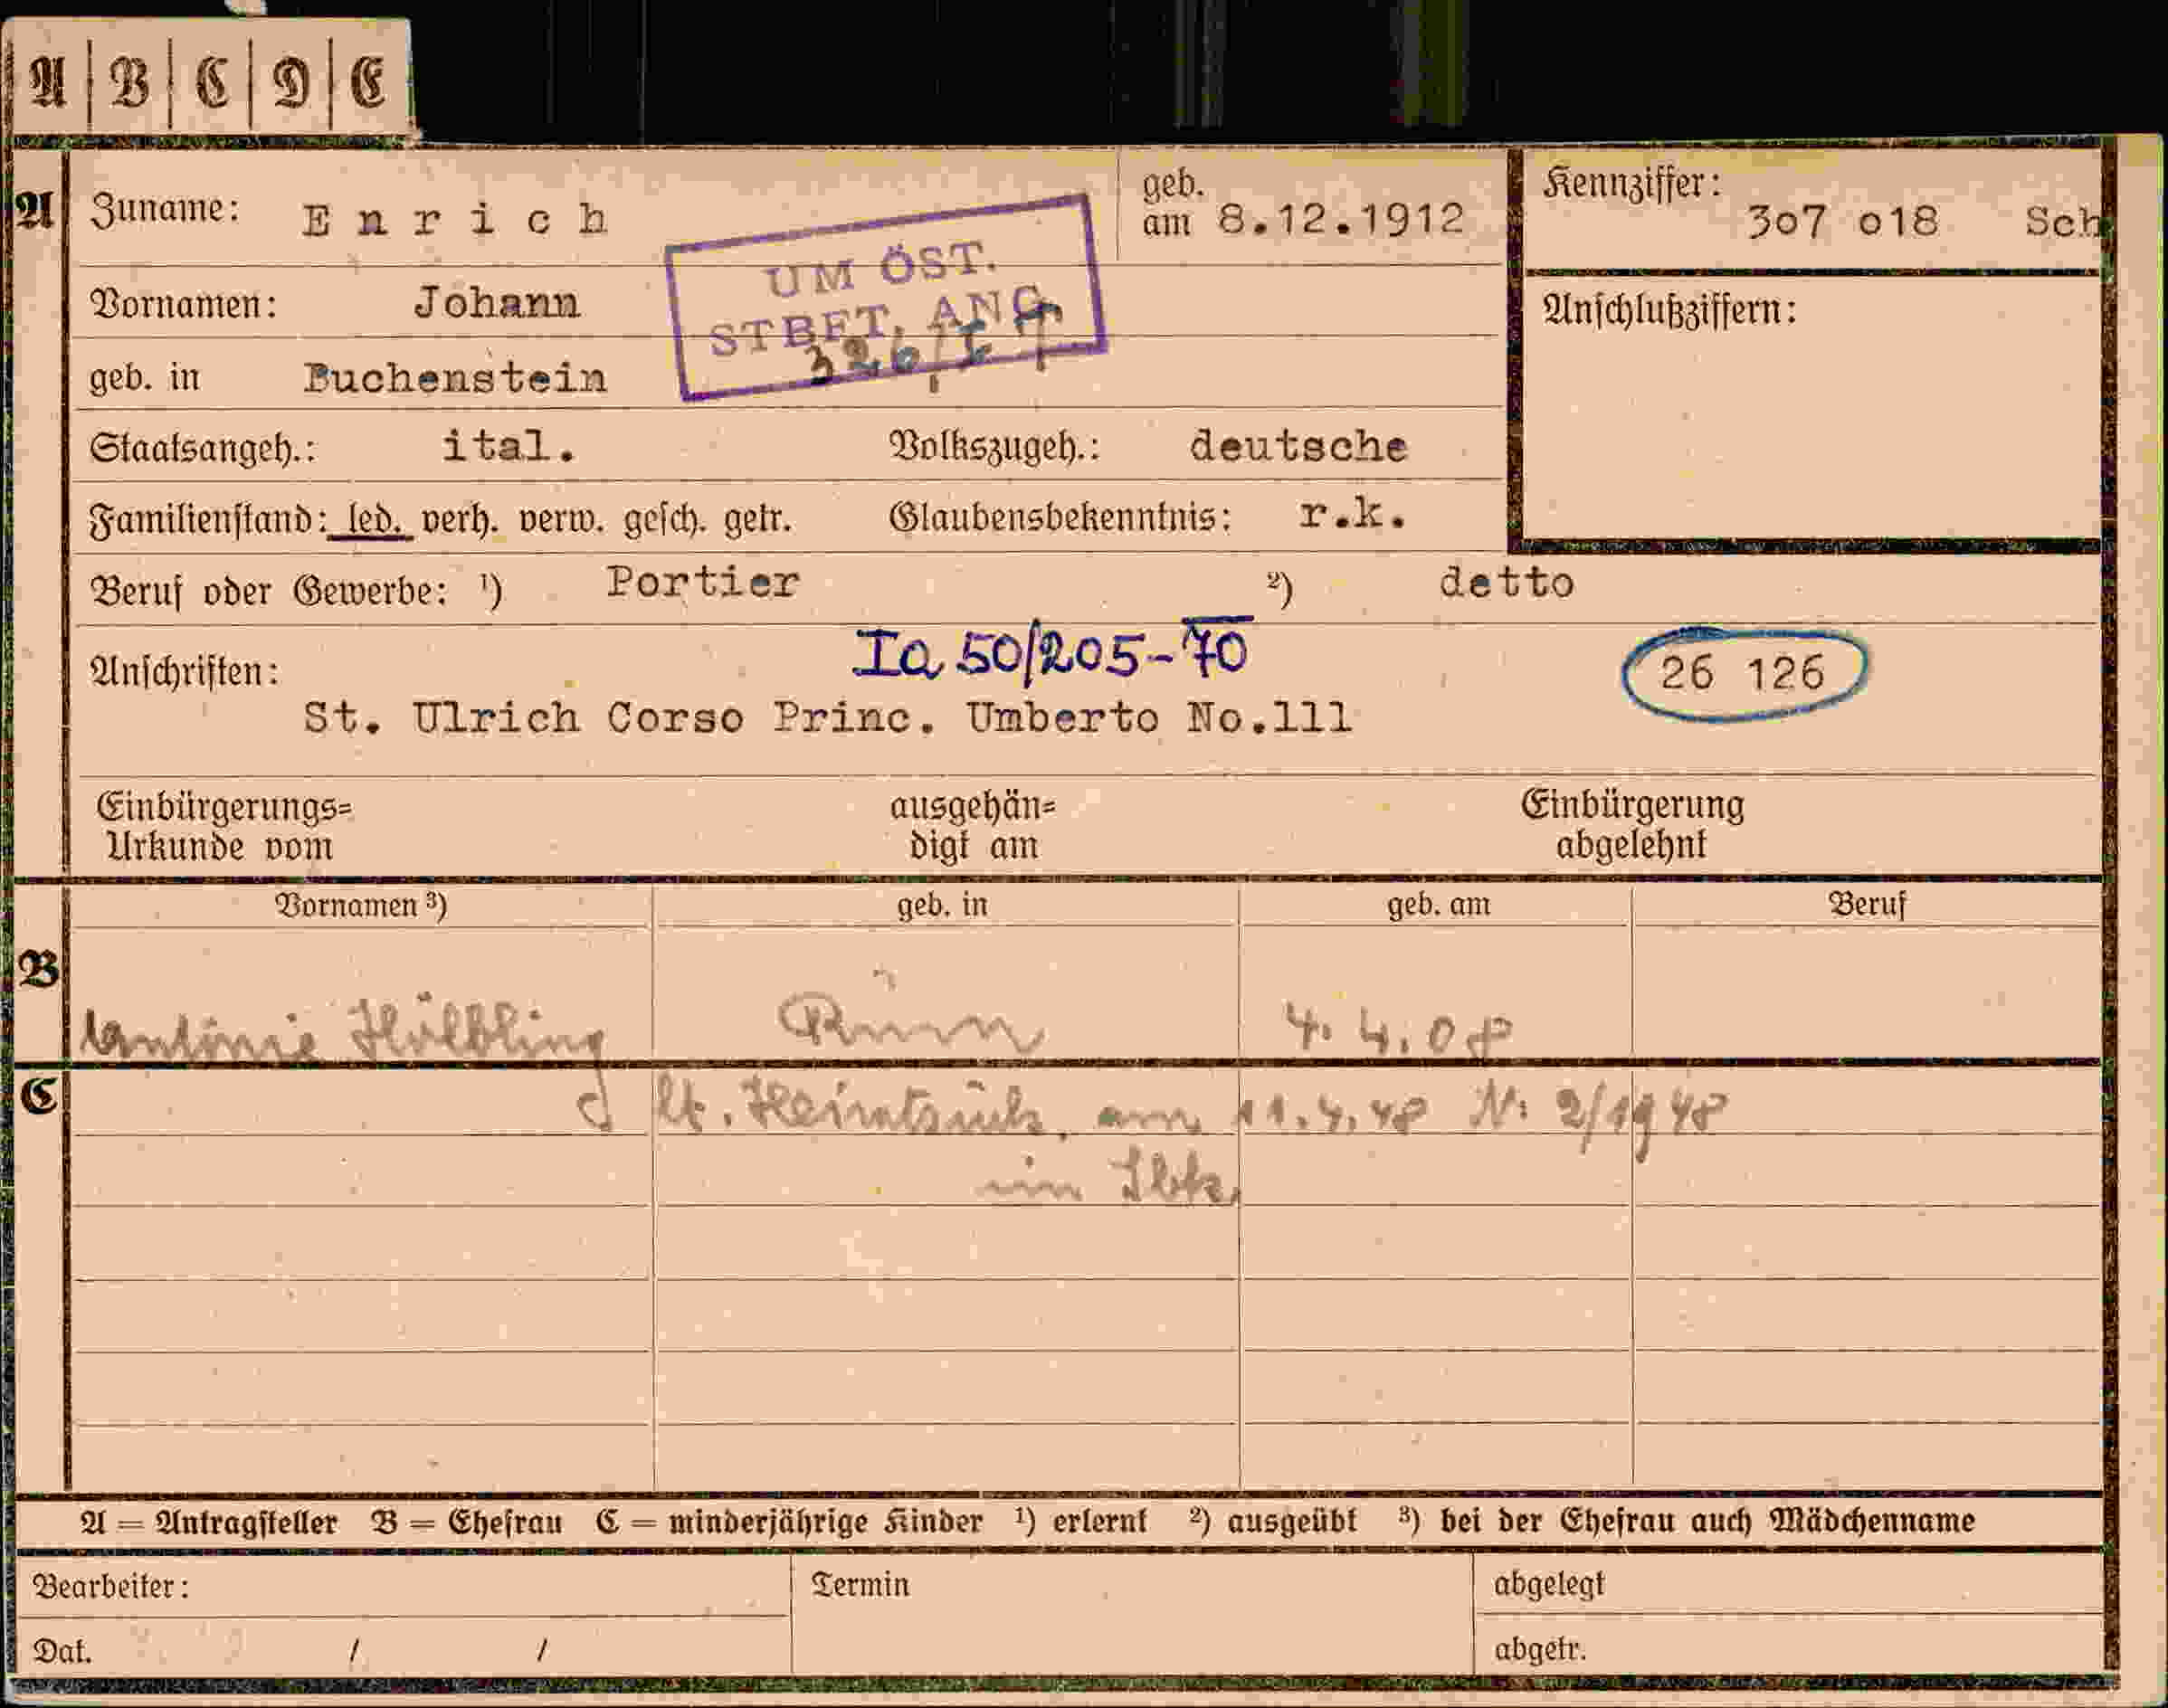 A | B | C | D | E
A Zuname: Enrich geb. am 8.12.1912 Kennziffer: 307 018 Sch
UM ÖST.
STBFT. ANG
326/I
Vornamen: Johann Anschlußziffern:
geb. in Buchenstein
Staatsangeh.: ital. Volkszugeh.: deutsche
Familienstand: led. verh. verw. gesch. getr. Glaubensbekenntnis: r.k.
Beruf oder Gewerbe: ¹) Portier ²) detto
Ia 50/205-70
Anschriften: 26 126
St. Ulrich Corso Princ. Umberto No.111
Einbürgerungs= ausgehän= Einbürgerung
Urkunde vom digt am abgelehnt
Vornamen ³) geb. in geb. am Beruf
B Antonie Hölbling 4.4.08
C am 11.4.48 N: 2/1948
in Ibk.
A = Antragsteller B = Ehefrau C = minderjährige Kinder ¹) erlernt ²) ausgeübt ³) bei der Ehefrau auch Mädchenname
Bearbeiter: Termin abgelegt
Dat. / / abgetr.